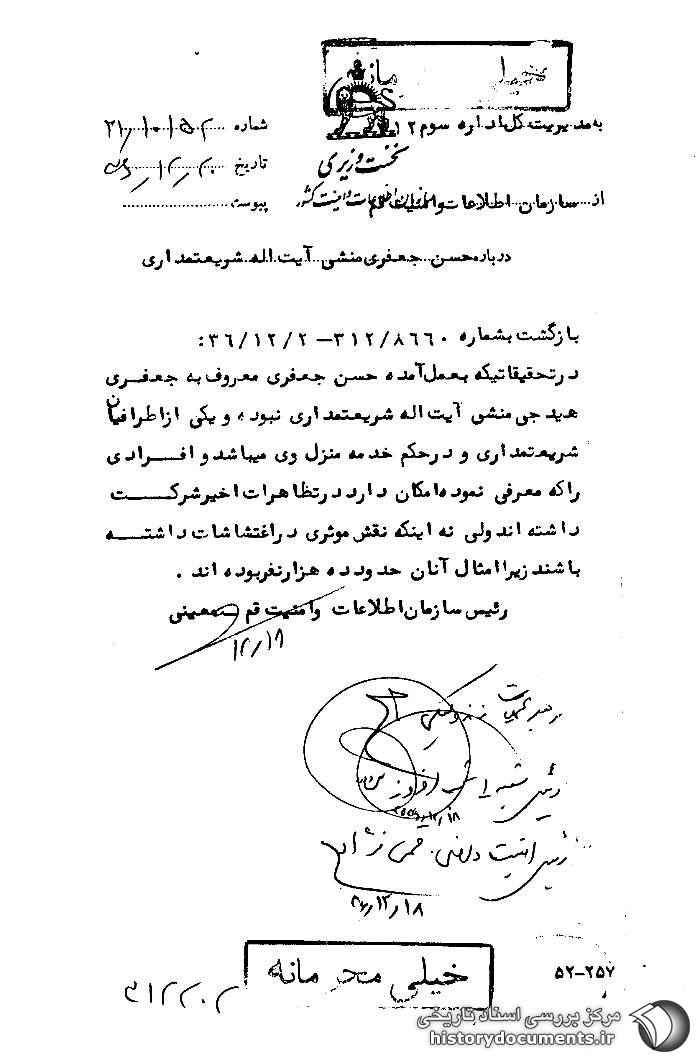 خیلی
به مدیریت کل اداره سوم ۳۱۲
شماره ۲۱/۱۰۱۵۲
نخست وزیری
تاریخ
از سازمان اطلاعات و امنیت قم
سازمان اطلاعات و امنیت کشور
پیوست
درباره حسن جعفری منشی آیت اله شریعتمداری
بازگشت بشماره ۳۱۲/۸۶۶۰ – ۳۶/۱۲/۲:
در تحقیقاتیکه بعمل آمده حسن جعفری معروف به جعفری
هیدجی منشی آیت اله شریعتمداری نبوده و یکی از اطرافیان
شریعتمداری و در حکم خدمه منزل وی میباشد و افـــرادی
را که معرفی نموده امکان دارد در تظاهرات اخیر شرکـــت
داشته اند ولی نه اینکه نقش موثری در اغتشاشات داشتـــه
باشند زیرا امثال آنان حدود ده هزار نفر بوده اند .
رئیس سازمان اطلاعات و امنیت قم ـ معینی
۱۲/۱۸
رهبر عملیات
رئیس
رئیس امنیت داخلی
۳۶/۱۲/۱۸
۵۲-۲۵۷
خیلی محرمانه
۳۱۲
مرکز بررسی اسناد تاریخی
historydocuments.ir